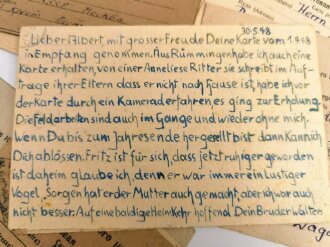 30.5.48
Lieber Albert, mit grosser Freude Deine Karte vom 1.4.48
in Empfang genommen. Aus Rümmingen habe ich auch eine
Karte erhalten von einer Anneliese Ritter sie schreibt im Auf-
trage ihrer Eltern dass er nicht nach Hause ist, habe ich vor
der Karte durch ein Kamerad erfahren es ging zur Erholung.
Die Feldarbeiten sind auch im Gange und wieder ohne mich.
Wenn Du bis zum Jahresende hergestellt bist dann kann ich
Dich ablössen. Fritz ist für sich, dass jetzt ruhiger geworden
ist daheim glaube ich, denn er war immer ein Lustiger
Vogel. Sorgen hat er der Mutter auch gemacht, aber ich war auch
nicht besser. Auf eine baldige Heimkehr hoffend Dein Bruder Walter.